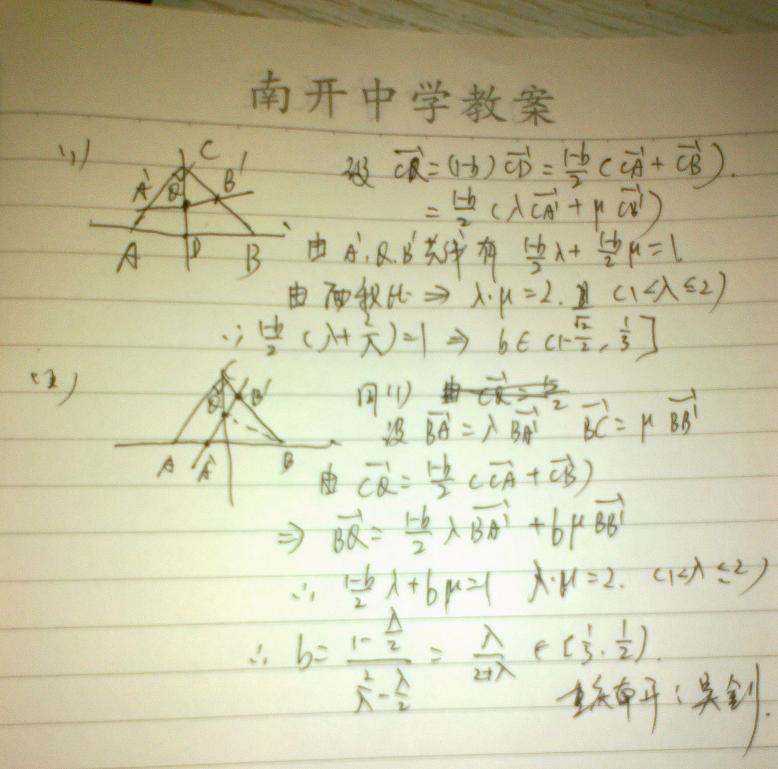 南开中学教案
(1) C A' Q B' A D B 设 $\overrightarrow{CQ}=(1-b)\overrightarrow{CD}=\frac{1-b}{2}(\overrightarrow{CA}+\overrightarrow{CB})$.
$=\frac{1-b}{2}(\lambda\overrightarrow{CA'}+\mu\overrightarrow{CB'})$
由 A'、Q、B' 共线有 $\frac{1-b}{2}\lambda+\frac{1-b}{2}\mu=1$
由面积比 ⇒ λ·μ=2. 且 (1<λ≤2)
∴ $\frac{1-b}{2}(\lambda+\frac{2}{\lambda})=1$ ⇒ $b\in(1-\frac{\sqrt{2}}{2},\frac{1}{3}]$
(2) C Q B' A A' B 同(1)
设 $\overrightarrow{BA}=\lambda\overrightarrow{BA'}$ $\overrightarrow{BC}=\mu\overrightarrow{BB'}$
由 $\overrightarrow{CQ}=\frac{1-b}{2}(\overrightarrow{CA}+\overrightarrow{CB})$
⇒ $\overrightarrow{BQ}=\frac{1-b}{2}\lambda\overrightarrow{BA'}+b\mu\overrightarrow{BB'}$
∴ $\frac{1-b}{2}\lambda+b\mu=1$ λ·μ=2. (1<λ≤2)
∴ $b=\frac{1-\frac{\lambda}{2}}{\frac{2}{\lambda}-\frac{\lambda}{2}}=\frac{\lambda}{2+\lambda}\in[\frac{1}{3},\frac{1}{2})$.
重庆南开：吴剑.